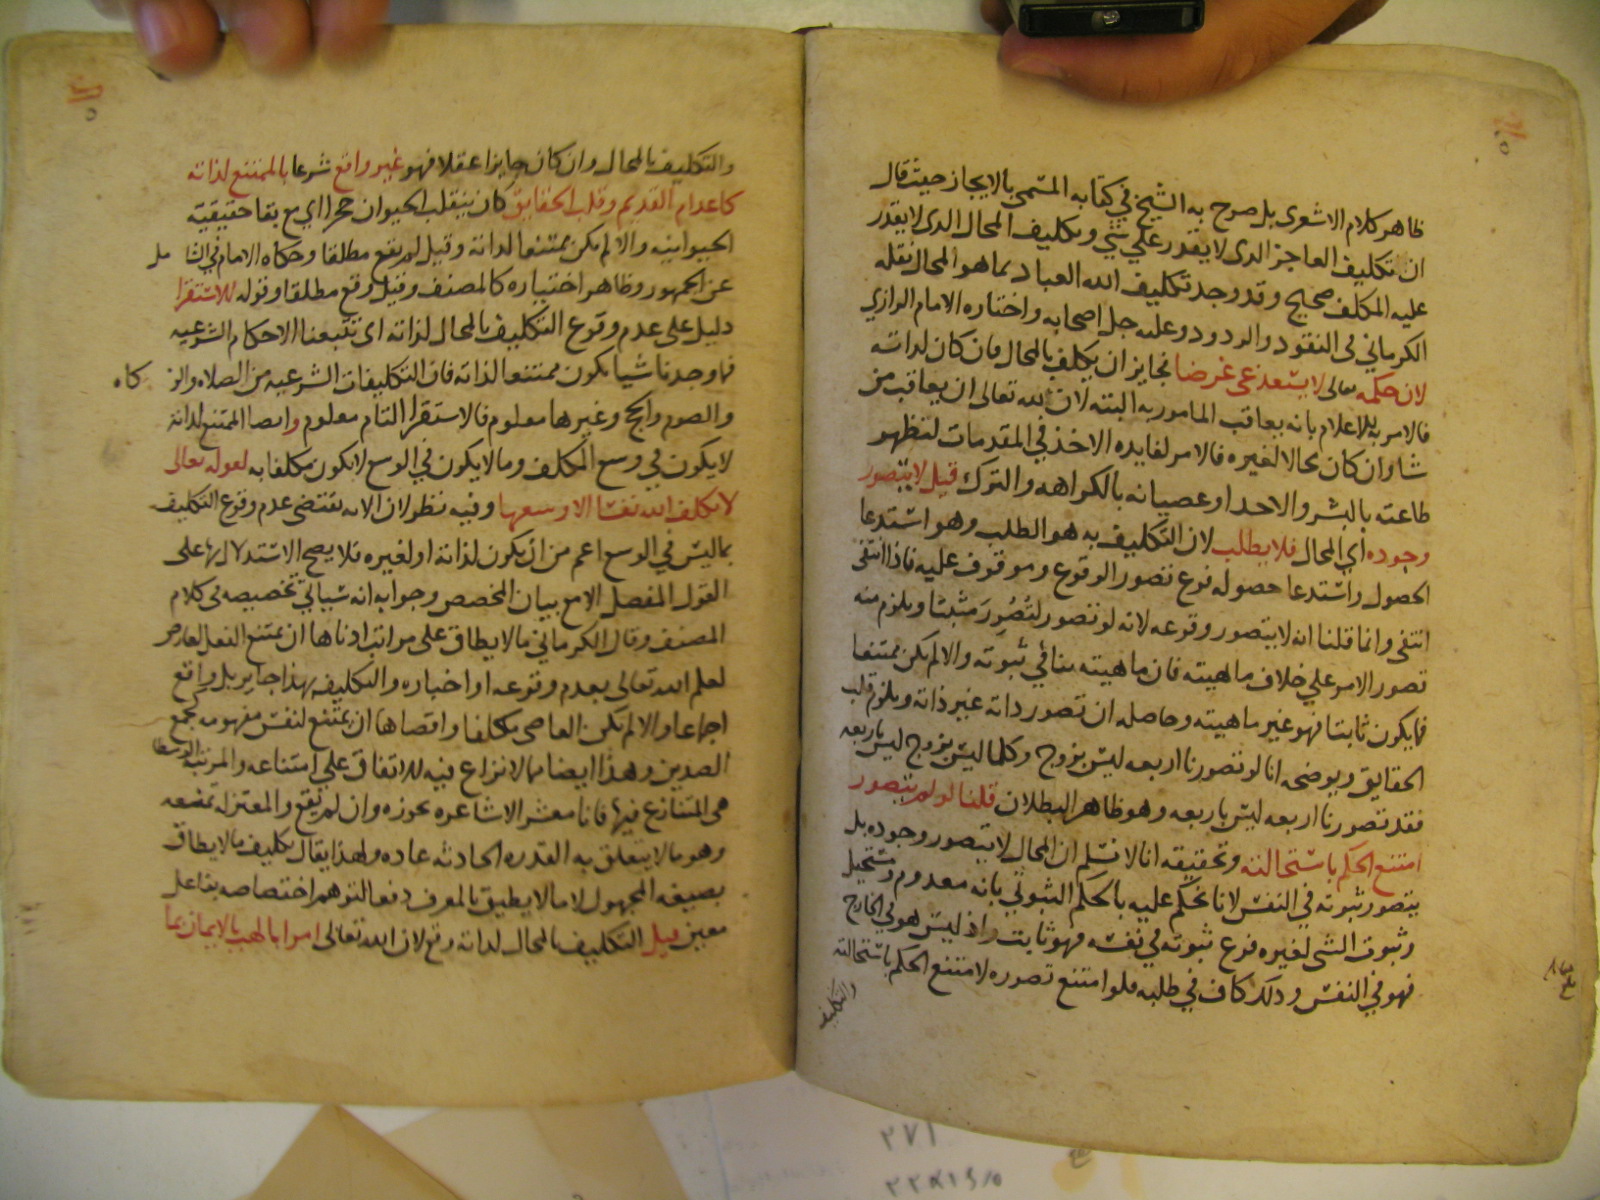 ظاهر كلام الاشعرى بل صرح به الشيخ في كتابه المسمى بالايجاز حيث قال
ان تكليف العاجز الذى لا يقدر علي شي وتكليف المحال الذى لا يقدر
عليه المكلف صحيح وقد وجد تكليف الله العباد بما هو المحال نقله
الكرماني في النقود والردود وعليه جل اصحابه واختاره الامام الرازي
لان حكمه تعالى لا يستدعى غرضا فجايز ان يكلف بالمحال فان كان لذاته
فالامر به للاعلام بانه يعاقب المامور به البته لان لله تعالى ان يعاقب من
شا وان كان محالا لغيره فالامر لفايده الاخذ في المقدمات لتظهر
طاعته بالبشر والاخذ او عصيانه بالكراهه والترك قيل لا يتصور
وجوده اي المحال فلا يطلب لان التكليف به هو الطلب وهو استدعا
الحصول واستدعا حصوله فرع تصور الوقوع وموقوف عليه فاذا انتفى
انتفى وانما قلنا انه لا يتصور وقوعه لانه لو تصور لتُصُوِرَ مثبتا ويلزم منه
تصور الامر علي خلاف ماهيته فان ماهيته تنافي ثبوته والا لم يكن ممتنعا
فما يكون ثابتا فهو غير ماهيته وحاصله ان تصور ذاته غير ذاته ويلزم قلب
الحقايق ويوضحه انا لو تصورنا اربعه ليس بزوج وكلما ليس بزوج ليس باربعه
فقد تصورنا اربعه ليس باربعه وهو ظاهر البطلان قلنا لو لم يتصور
امتنع الحكم باستحالته وتحقيقه انا لا نسلم ان المحال لا يتصور وجوده بل
يتصور ثبوته في النفس لانا نحكم عليه بالحكم الثبوتي بانه معدوم ومستحيل
وثبوت الشى لغيره فرع ثبوته في نفسه فهو ثابت واذ ليس هو في الخارج
فهو في النفس وذلك كاف في طلبه فلو امتنع تصوره لامتنع الحكم باستحالته
والتكليف
والتكليف بالمحال وان كان جايزا عقلا فهو غير واقع شرعا بالممتنع لذاته
كاعدام القديم وقلب الحقايق كان ينقلب الحيوان حجرا اي مع بقا حقيقيّة
الحيوانيه والا لم يكن ممتنعا لذاته وقيل لم يقع مطلقا وحكاه الامام في الشا مل
عن الجمهور وظاهر اختياره كالمصنف وقيل وقع مطلقا وقوله للاستقرا
دليل على عدم وقوع التكليف بالمحال لذاته اى تتبعنا الاحكام الشرعيه
فما وجدنا شيا يكون ممتنعا لذاته فان التكليفات الشرعيه من الصلاه والز كاه
والصوم والحج وغيرها معلوم فالاستقرا التام معلوم وايضا الممتنع لذاته
لا يكون في وسع المكلف وما لا يكون في الوسع لا يكون مكلفا به لقوله تعالى
لا يكلف الله نفسا الا وسعها وفيه نظر لان الايه تقتضى عدم وقوع التكليف
بما ليس في الوسع اعم من ان يكون لذاته او لغيره فلا يصح الاستدلال بها على
القول المفصل الا مع بيان المخصص وجوابه انه سياتي تخصيصه في كلام
المصنف وقال الكرماني ما لا يطاق على مراتب ادناها ان يمتنع الفعل
لعلم الله تعالى بعدم وقوعه او اخباره والتكليف بهذا جايز بل واقع
اجماعا والا لم يكن العاصى مكلفا واقصاها ان يمتنع لنفس مفهومه كجمع
الضدين وهذا ايضا مما لا نزاع فيه للاتفاق علي امتناعه والمرتبه الوسطا
هى المتنازع فيها فانا معشر الاشاعره نجوزه وان لم يقع والمعتزله تمنعه
وهو ما لا يتعلق به القدره الحادثه عاده ولهذا يقال تكليف ما لا يطاق
بصيغه المجهول لا ما لا يطيق بالمعرف دفعا لتوهم اختصاصه بفاعل
معين قيل التكليف بالمحال لذاته وقع لان الله تعالى امر ابا لهب بالايمان بما
٢٧١